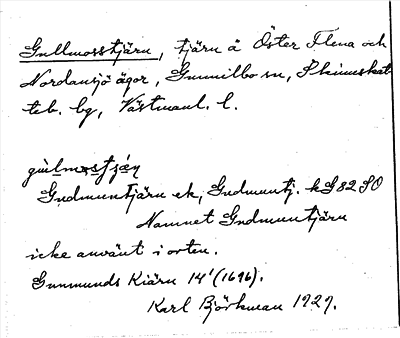 Gullmosstjärn, tjärn å Öster Flena och
Nordansjö ägor, Gunnilbo sn, Skinnskat-
teb. bg, Västmanl. l.
gùlmostjǽn
Gudmuntjärn ek, Gudmuntj. kG 82 SO
Namnet Gudmuntjärn
icke använt i orten.
Gunmunds Kiärn 14' (1696).
Karl Björkman 1929.